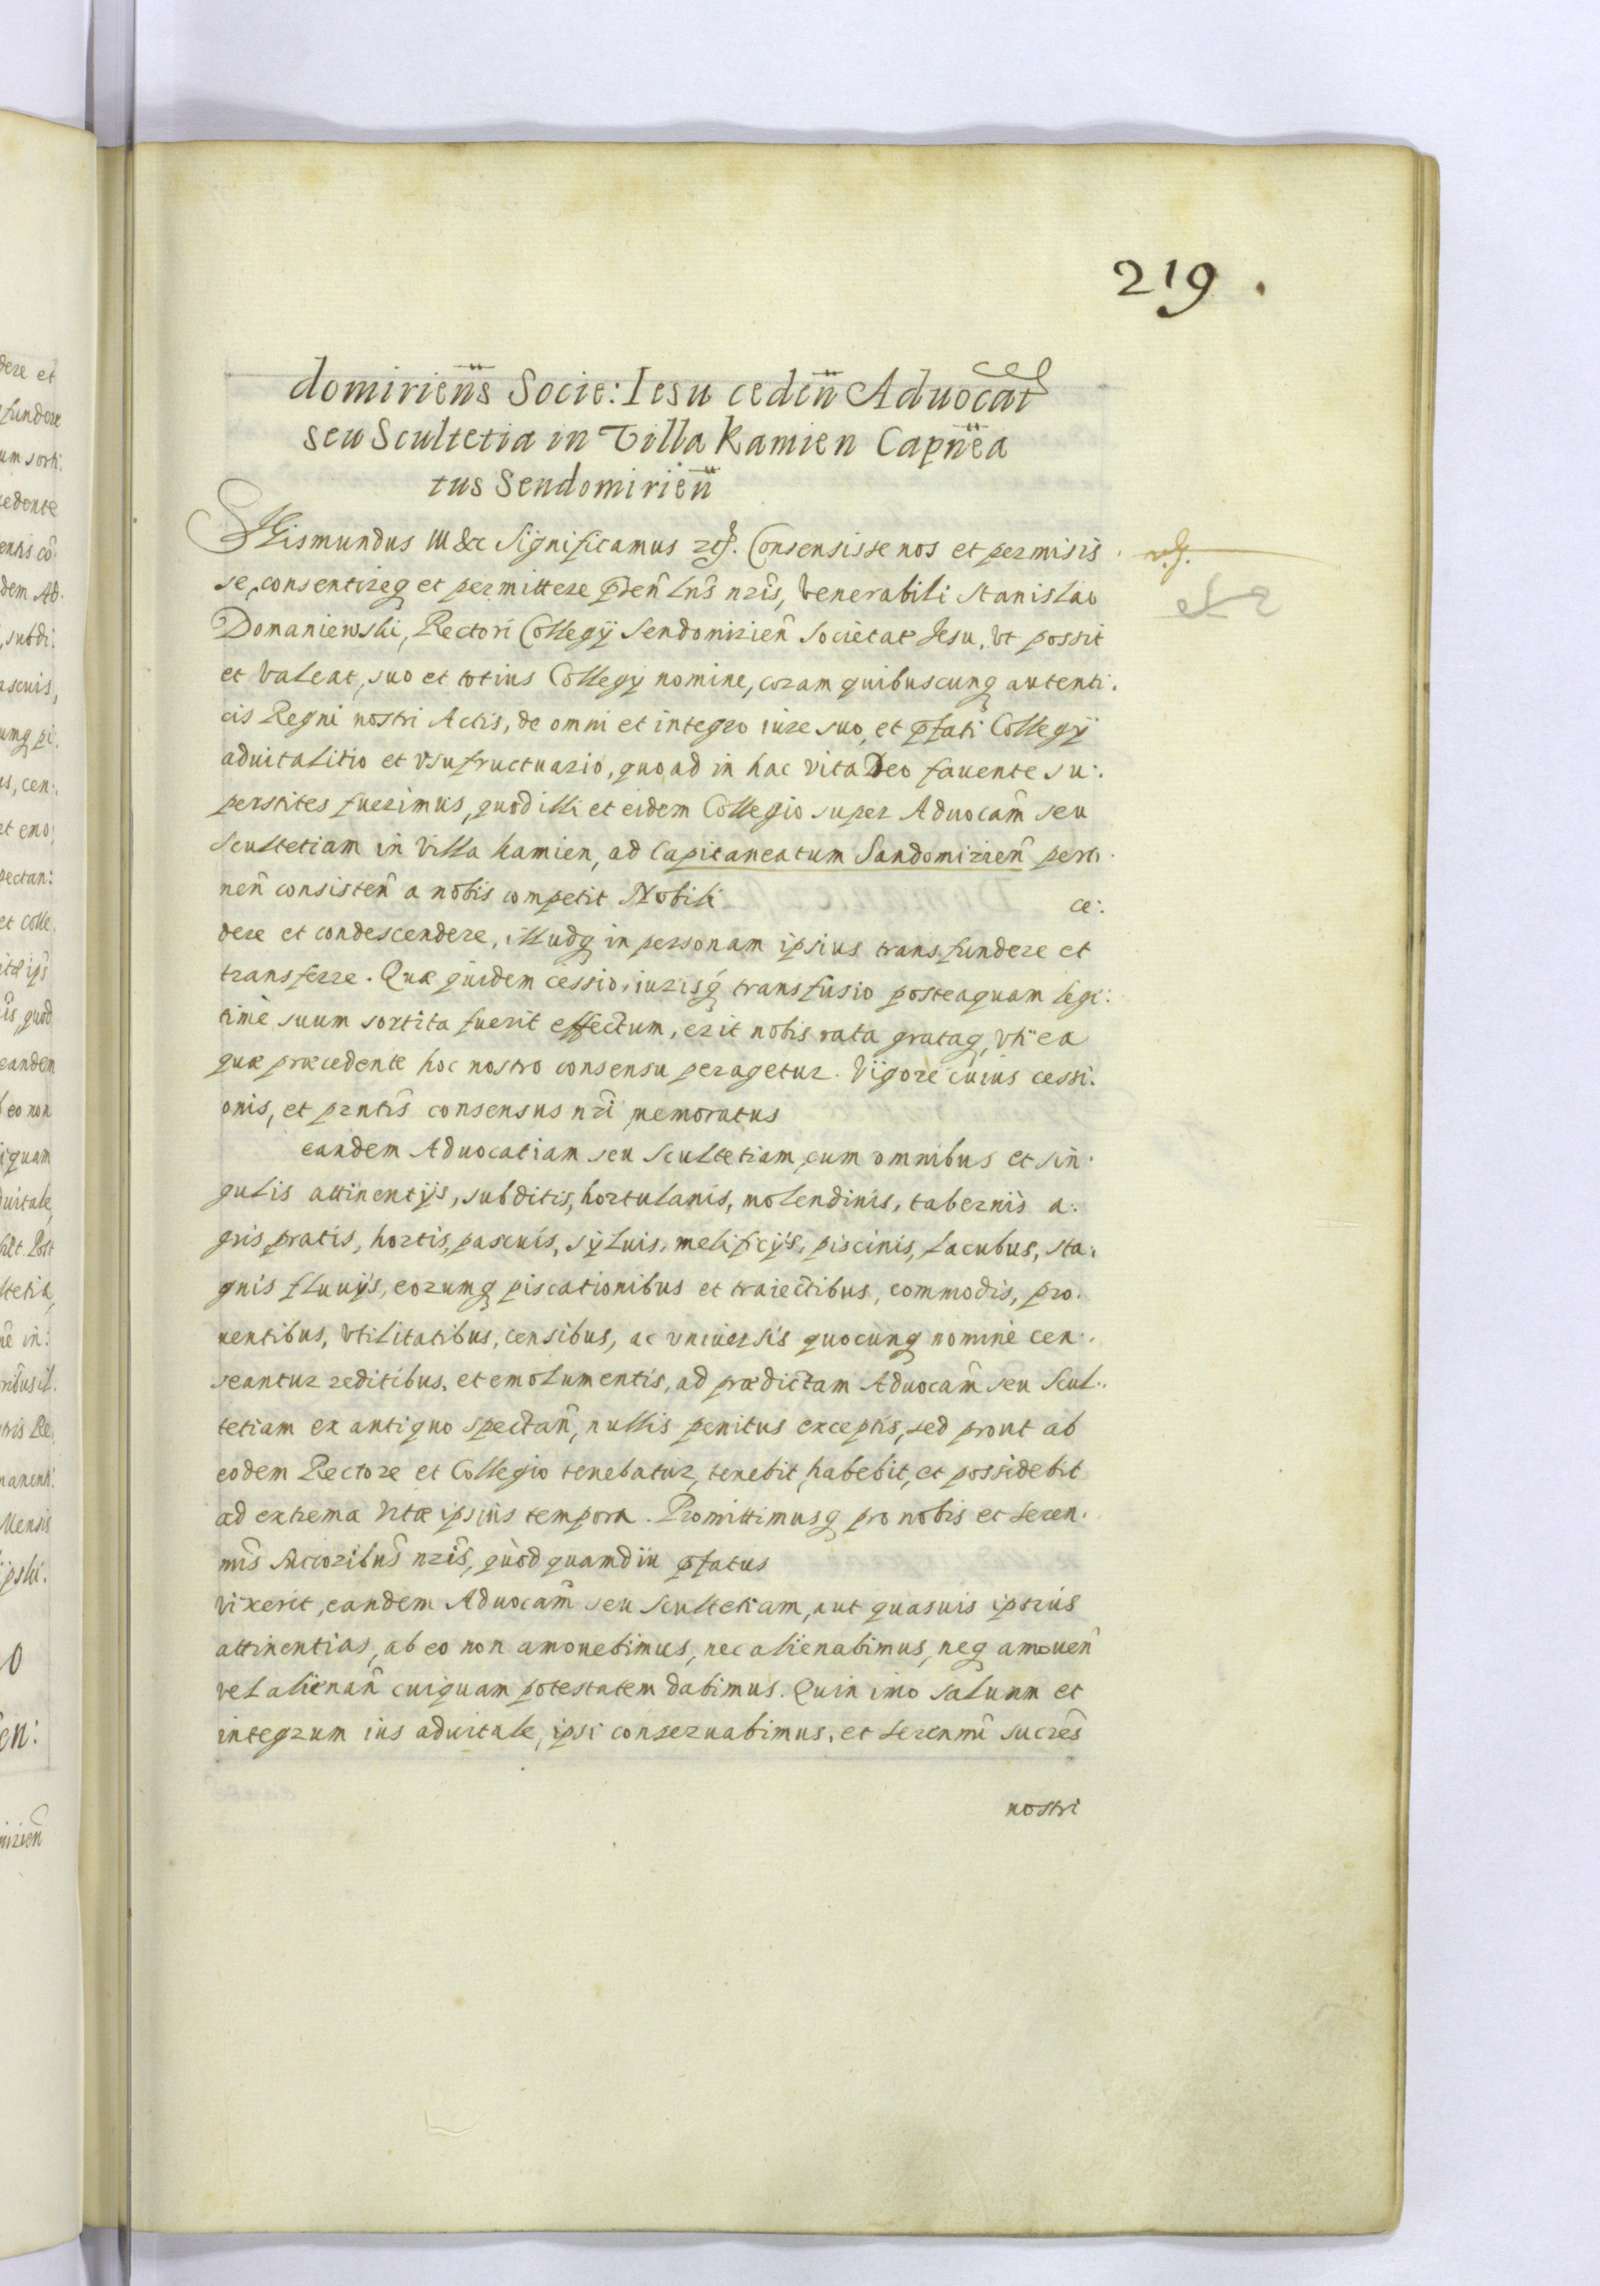 219.
domirieñs Socie: Iesu cedeñ Aduocat
seu Scultetia in Villa Kamien Capnea
tus Sendomirieñ
Sigismundus III &c Significamus &c. Consensisse nos et permisis
se, consentireq et permittere pñtˉ Lrˉs nrˉis, Venerabili Stanislao
Domaniewski, Rectori Collegÿ Sendomirieñ Societat Jesu, Vt possit
et Valeat, suo et totius Collegÿ nomine, coram quibuscunq autenti:
cis Regni nostri Actis, de omni et integro iure suo, et pfati Collegÿ
aduitalitio et Vsufructuario, quo ad in hac vita Deo fauente su:
perstites fuerimus, quod illi et eidem Collegio super Aduocam̃ seu
Scultetiam in Villa Kamien, ad Capitaneatum Sandomirieñ perti:
neñ consisteñ a nobis competit Nobili ce:
dere et condescendere, illudq in personam ipsius transfundere et
transferre. Quæ quidem cessio, iurisq transfusio posteaquam legi:
time suum sortita fuerit effectum, erit nobis rata grataq, vti ea
quæ præcedente hoc nostro consensu peragetur. Vigore cuius cessi:
onis, et prntis̃ consensus nrĩ memoratus
eandem Aduocatiam seu Scultetiam, cum omnibus et sin:
gulis attinentÿs, subditis, hortulanis, molendinis, tabernis a:
gris pratis, hortis, pascuis, sÿluis, melificÿs, piscinis, lacubus, sta:
gnis fluuÿs, eorumq piscationibus et traiectibus, commodis, pro:
uentibus, Vtilitatibus, censibus, ac vniuersis quocunq nomine cen:
seantur reditibus, et emolumentis, ad prædictam Aduocam̃ seu Scul:
tetiam ex antiquo spectañ, nullis penitus exceptis, sed prout ab
eodem Rectore et Collegio tenebatur, tenebit, habebit, et possidebit
ad extrema Vitæ ipsius tempora. Promittimusq pro nobis et seren:
mis̃ Succoribus̃ nris̃, quod quamdiu pfatus
vixerit, eandem Aduocam̃ seu Scultetiam, aut quasuis ipsius
attinentias, ab eo non amouebimus, nec alienabimus, neq amoueñ
vel alienañ cuiquam potestatem dabimus. Quin imo saluum et
integrum ius aduitale, ipsi conseruabimus, et serenmĩ sucrẽs
nostri